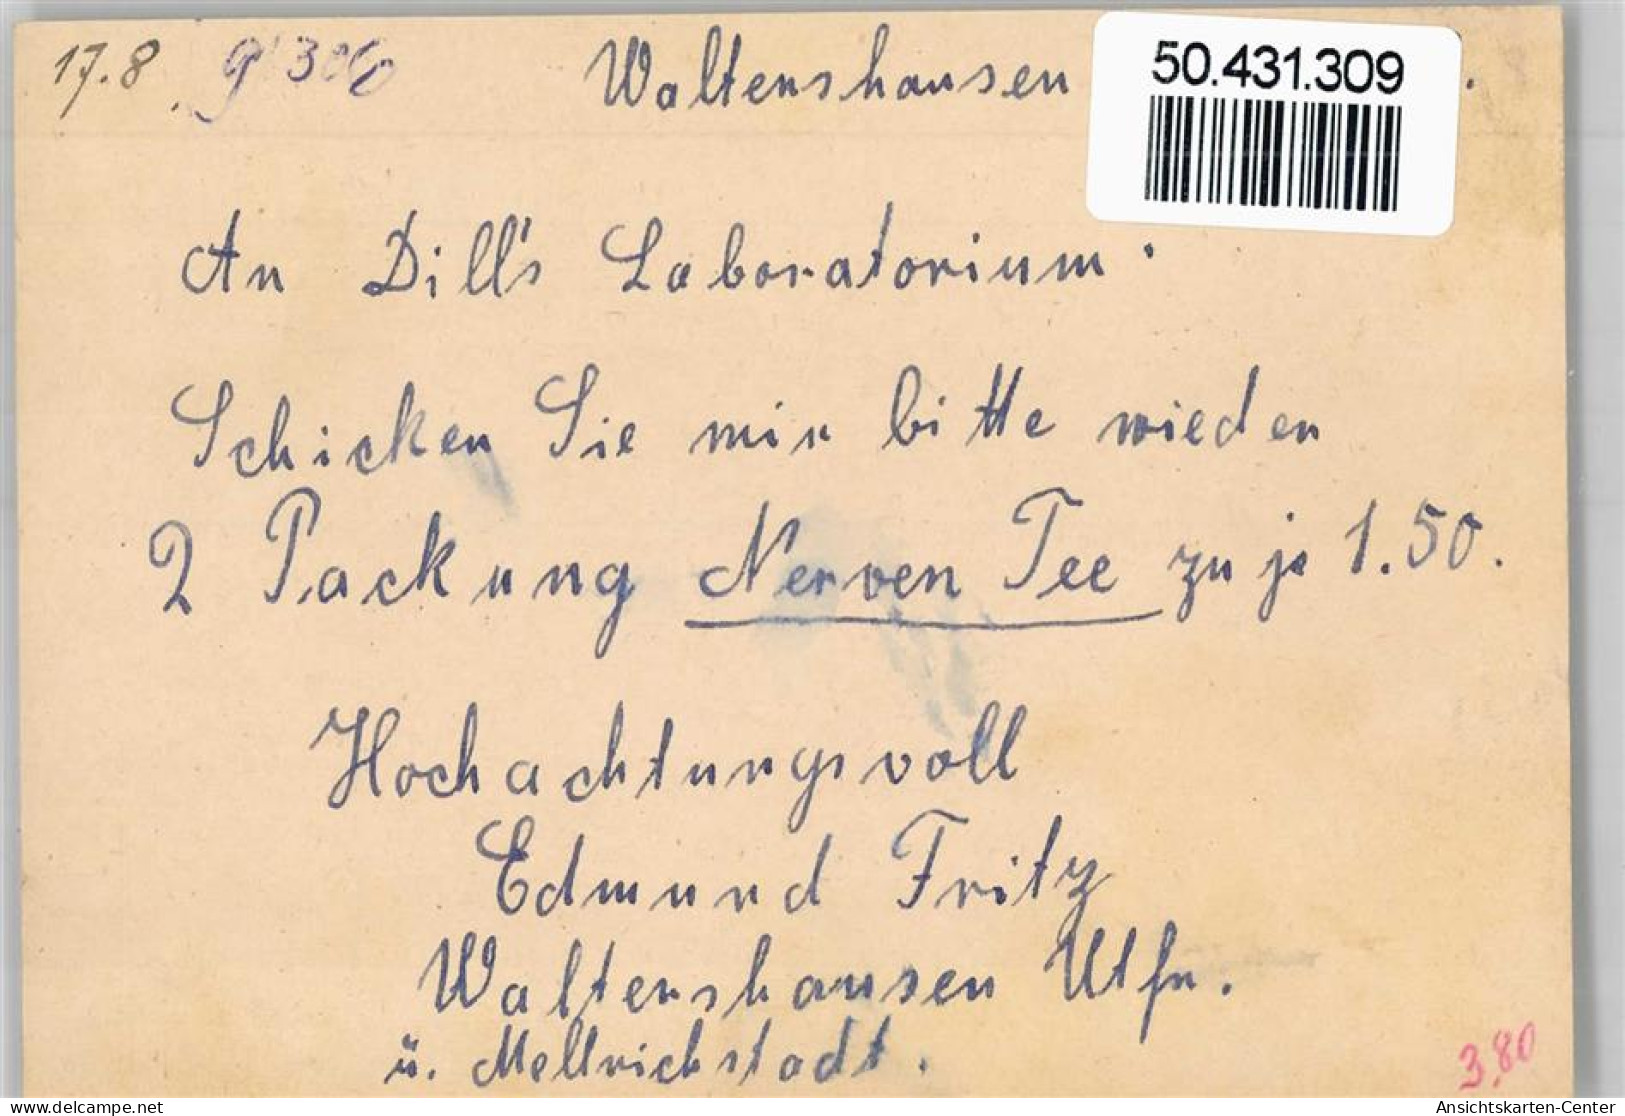 17.8 Waltenshausen
50.431.309
An Dill's Laboratorium.
Schicken Sie mir bitte wieder
2 Packung Nerven Tee zu je 1.50.
Hochachtungsvoll
Edmund Fritz
Waltershausen Utfr.
ü. Mellrichstadt.
3,80
Ansichtskarten-Center
delcampe.net